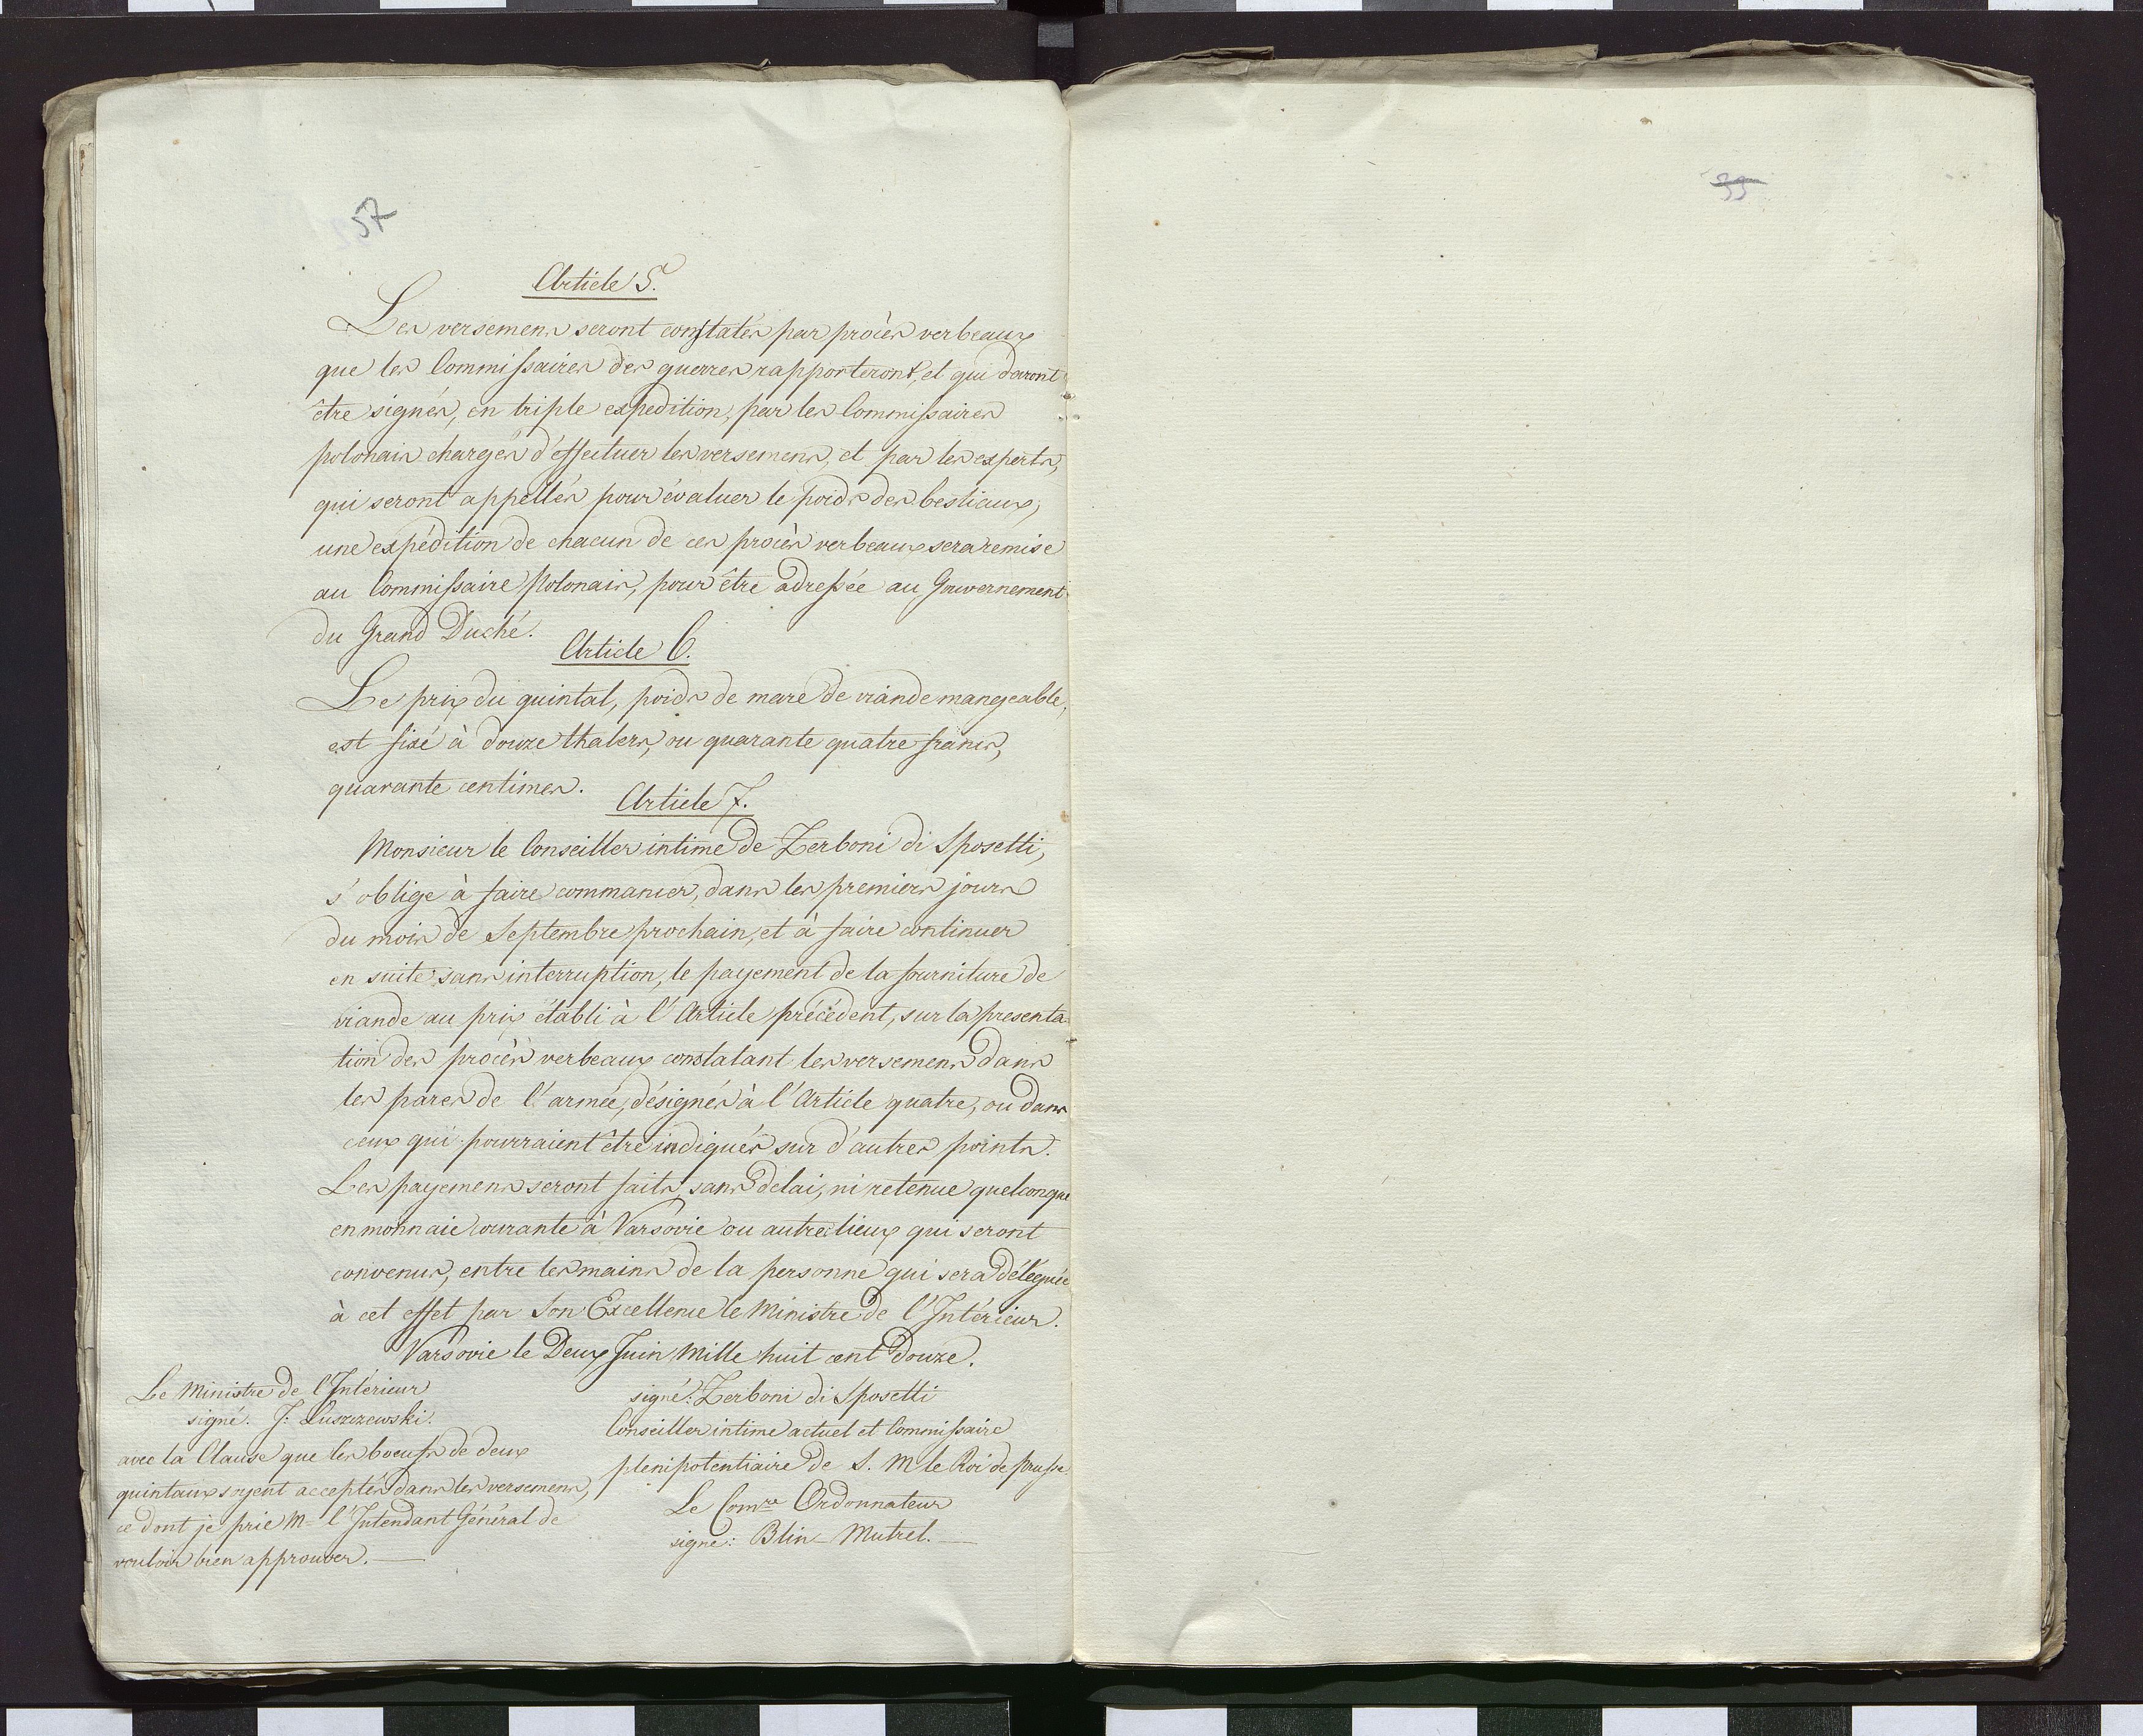 57
Article 5.
Les versemens seront constatés par procès verbeaux
que les Commissaires des guerres rapporteront, et qui devront
être signés, en triple expedition, par les Commissaires
polonais chargés d'effectuer les versemens, et par les experts,
qui seront appellés pour évaluer le poids des bestiaux,
une expédition de chacun de ces procès verbeaux sera remise
au Commissaire polonais, pour être adressée au Gouvernement
du Grand Duché.
Article 6.
Le prix du quintal, poids de marc de viande mangeable,
est fixé à douze thalers, ou quarante quatre francs,
quarante centimes.
Article 7.
Monsieur le Conseiller intime de Zerboni di Sposetti,
s'oblige à faire commancer, dans les premiers jours
du mois de Septembre prochain, et à faire continuer
en suite sans interruption, le payement de la fourniture de
viande au prix établi à l'Article précédent, sur la presenta-
tion des procès verbeaux constatant les versemens dans
les parcs de l'armée, désignés à l'Article quatre, ou dans
ceux qui pourraient être indiqués sur d'autres points.
Les payemens seront faits, sans delai, ni retenue quelconque
en monnaie courante à Varsovie ou autres lieux qui seront
convenus, entre les mains de la personne qui sera déléguée
à cet effet par Son Excellence le Ministre de l'Intérieur.
Varsovie le Deux Juin Mille huit cent Douze.
Le Ministre de l'Intérieur
signé. J: Luszczewski.
avec la Clause que les boeufs de deux
quintaux soyent acceptés dans les versemens,
ce dont je prie Mr l'Intendant Général de
vouloir bien approuver.—
signé: Zerboni di Sposetti
Conseiller intime actuel et Commissaire
plenipotentiaire de S. M le Roi de Prusse.
Le Comre Ordonnateur
signé: Blin-Mutrel.—
35